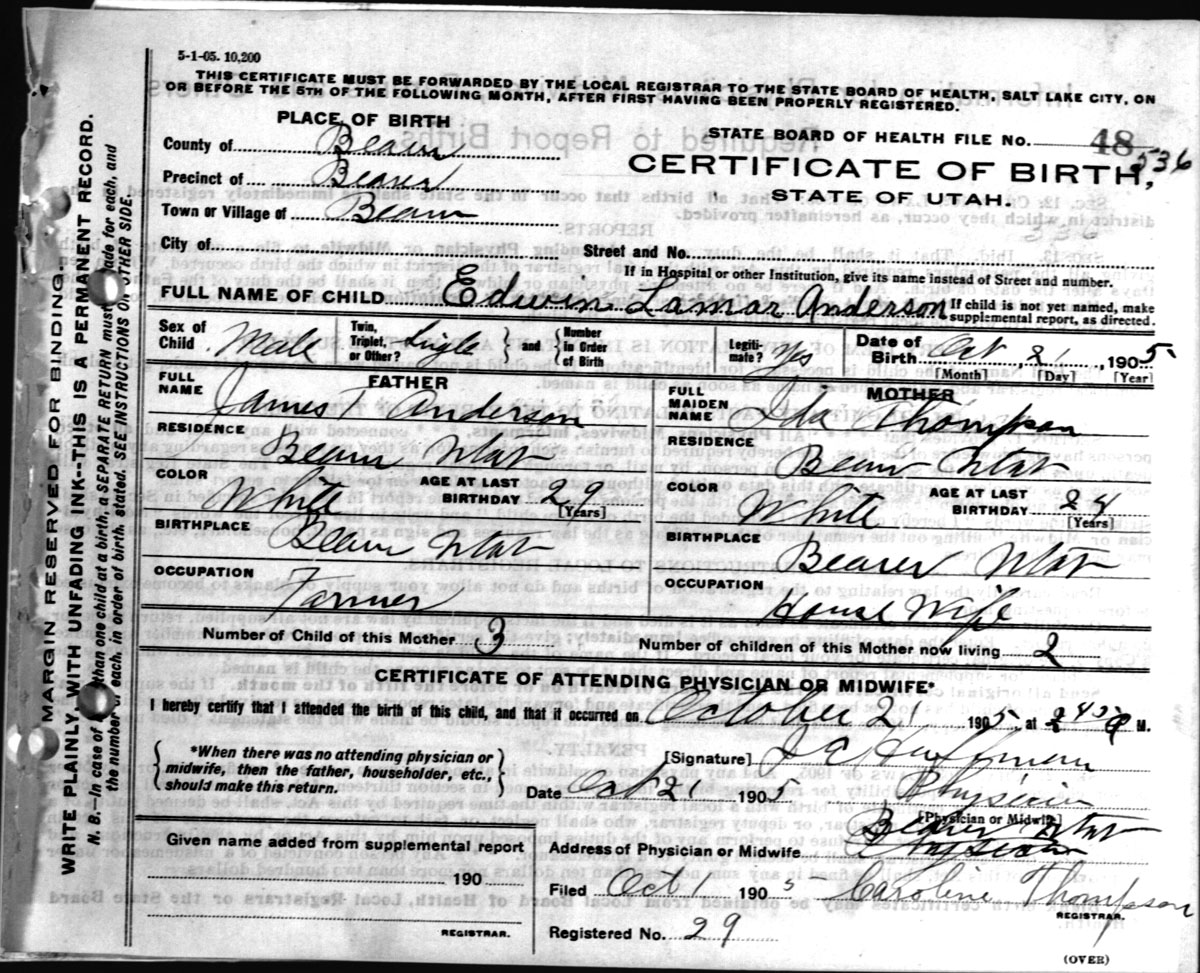 5-1-05. 10,200
THIS CERTIFICATE MUST BE FORWARDED BY THE LOCAL REGISTRAR TO THE STATE BOARD OF HEALTH, SALT LAKE CITY, ON
OR BEFORE THE 5TH OF THE FOLLOWING MONTH, AFTER FIRST HAVING BEEN PROPERLY REGISTERED.
PLACE OF BIRTH
STATE BOARD OF HEALTH FILE No. 48 536
County of Beaver
CERTIFICATE OF BIRTH,
Precinct of Beaver
STATE OF UTAH.
Town or Village of Beaver
336
City of Street and No.
If in Hospital or other Institution, give its name instead of Street and number.
FULL NAME OF CHILD Edwin Lamar Anderson If child is not yet named, make
supplemental report, as directed.
Sex of Child Male Twin, Triplet, or Other? Sigle } and { Number in Order of Birth Legiti- mate? Yes Date of Birth Oct 21, 1905
[Month] [Day] [Year]
FATHER
FULL NAME James T Anderson
MOTHER
FULL MAIDEN NAME Ida Thompson
RESIDENCE Beaver Utah
RESIDENCE Beaver Utah
COLOR White AGE AT LAST BIRTHDAY 29 [Years]
COLOR White AGE AT LAST BIRTHDAY 24 [Years]
BIRTHPLACE Beaver Utah
BIRTHPLACE Beaver Utah
OCCUPATION Farmer
OCCUPATION House Wife
Number of Child of this Mother 3 Number of children of this Mother now living 2
CERTIFICATE OF ATTENDING PHYSICIAN OR MIDWIFE*
I hereby certify that I attended the birth of this child, and that it occurred on October 21 1905, at M.
{ *When there was no attending physician or
midwife, then the father, householder, etc.,
should make this return. }
[Signature]
Date Oct 21 1905 Physician
[Physician or Midwife]
Beaver Utah
Given name added from supplemental report
Address of Physician or Midwife Physician
190
Filed Oct 1 1905 Caroline Thompson
REGISTRAR.
REGISTRAR.
Registered No. 29
(OVER)
MARGIN RESERVED FOR BINDING.
WRITE PLAINLY, WITH UNFADING INK--THIS IS A PERMANENT RECORD.
N. B.--In case of than one child at a birth, a SEPARATE RETURN must made for each, and
the number of each, in order of birth, stated. SEE INSTRUCTIONS ON OTHER SIDE.